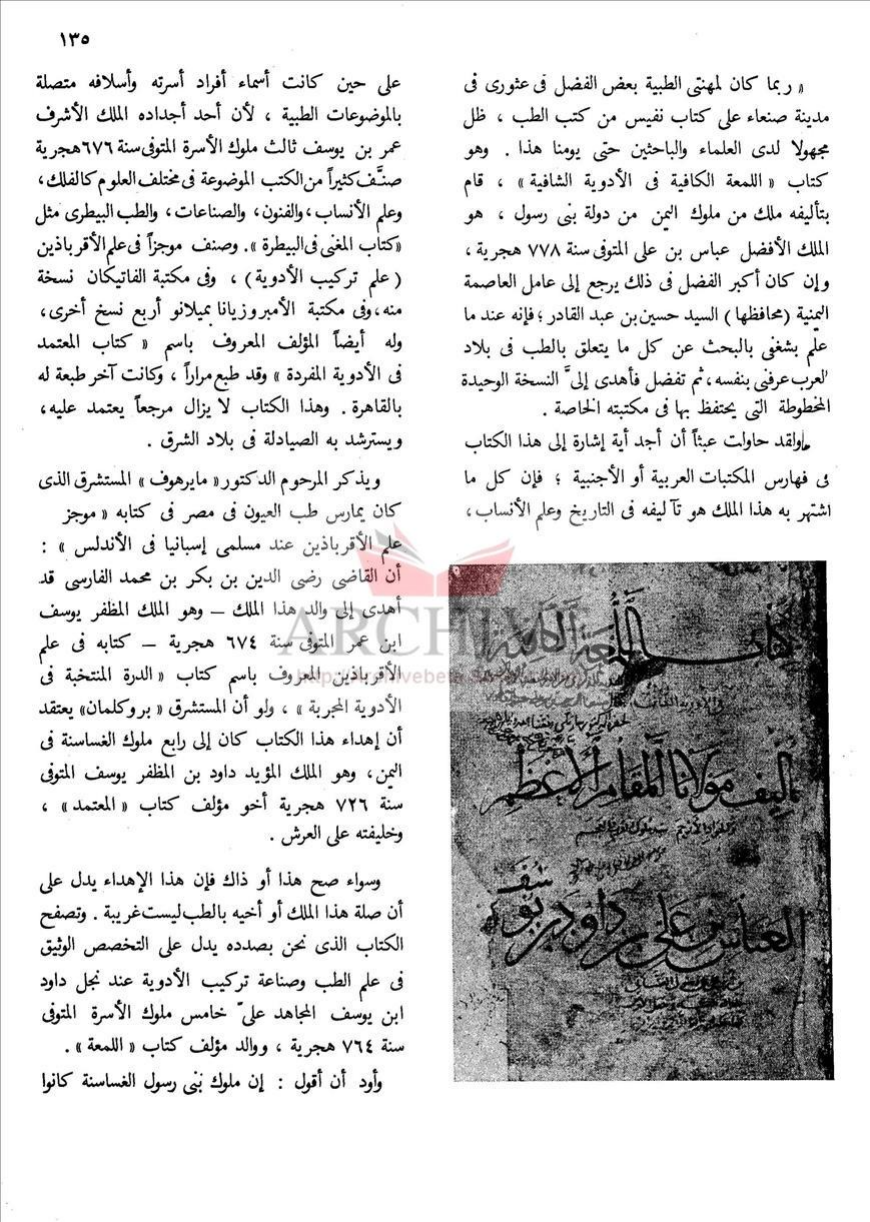 ١٣٥
« ربما كان لمهنتى الطبية بعض الفضل فى عثورى فى
مدينة صنعاء على كتاب نفيس من كتب الطب ، ظل
مجهولا لدى العلماء والباحثين حتى يومنا هذا . وهو
كتاب « اللمعة الكافية فى الأدوية الشافية » ، قام
بتأليفه ملك من ملوك اليمن من دولة بنى رسول ، هو
الملك الأفضل عباس بن على المتوفى سنة ٧٧٨ هجرية ،
وإن كان أكبر الفضل فى ذلك يرجع إلى عامل العاصمة
اليمنية (محافظها) السيد حسين بن عبد القادر ؛ فإنه عند ما
علم بشغفى بالبحث عن كل ما يتعلق بالطب فى بلاد
العرب عرفنى بنفسه ، ثم تفضل فأهدى إلىَّ النسخة الوحيدة
المخطوطة التى يحتفظ بها فى مكتبته الخاصة .
ولقد حاولت عبثاً أن أجد أية إشارة إلى هذا الكتاب
فى فهارس المكتبات العربية أو الأجنبية ؛ فإن كل ما
اشتهر به هذا الملك هو تآليفه فى التاريخ وعلم الأنساب ،
كتاب اللمعة الكافية
تاليف مولانا المقام الاعظم
العباس بن على بن داود بن يوسف
على حين كانت أسماء أفراد أسرته وأسلافه متصلة
بالموضوعات الطبية ، لأن أحد أجداده الملك الأشرف
عمر بن يوسف ثالث ملوك الأسرة المتوفى سنة ٦٧٦ هجرية
صنَّف كثيراً من الكتب الموضوعة فى مختلف العلوم كالفلك ،
وعلم الأنساب ، والفنون ، والصناعات ، والطب البيطرى مثل
« كتاب المغنى فى البيطرة » . وصنف موجزاً فى علم الأقرباذين
( علم تركيب الأدوية ) ، وفى مكتبة الفاتيكان نسخة
منه ، وفى مكتبة الأمبروزيانا بميلانو أربع نسخ أخرى ،
وله أيضاً المؤلف المعروف باسم « كتاب المعتمد
فى الأدوية المفردة » وقد طبع مراراً ، وكانت آخر طبعة له
بالقاهرة . وهذا الكتاب لا يزال مرجعاً يعتمد عليه ،
ويسترشد به الصيادلة فى بلاد الشرق .
ويذكر المرحوم الدكتور « مايرهوف » المستشرق الذى
كان يمارس طب العيون فى مصر فى كتابه « موجز
علم الأقرباذين عند مسلمى إسبانيا فى الأندلس » :
أن القاضى رضى الدين بن بكر بن محمد الفارسى قد
أهدى إلى والد هذا الملك – وهو الملك المظفر يوسف
ابن عمر المتوفى سنة ٦٧٤ هجرية – كتابه فى علم
الأقرباذين المعروف باسم كتاب « الدرة المنتخبة فى
الأدوية المجربة » ، ولو أن المستشرق « بروكلمان » يعتقد
أن إهداء هذا الكتاب كان إلى رابع ملوك الغساسنة فى
اليمن ، وهو الملك المؤيد داود بن المظفر يوسف المتوفى
سنة ٧٢٦ هجرية أخو مؤلف كتاب « المعتمد » ،
وخليفته على العرش .
وسواء صح هذا أو ذاك فإن هذا الإهداء يدل على
أن صلة هذا الملك أو أخيه بالطب ليست غريبة . وتصفح
الكتاب الذى نحن بصدده يدل على التخصص الوثيق
فى علم الطب وصناعة تركيب الأدوية عند نجل داود
ابن يوسف المجاهد علىّ خامس ملوك الأسرة المتوفى
سنة ٧٦٤ هجرية ، ووالد مؤلف كتاب « اللمعة » .
وأود أن أقول : إن ملوك بنى رسول الغساسنة كانوا
ARCHIVE